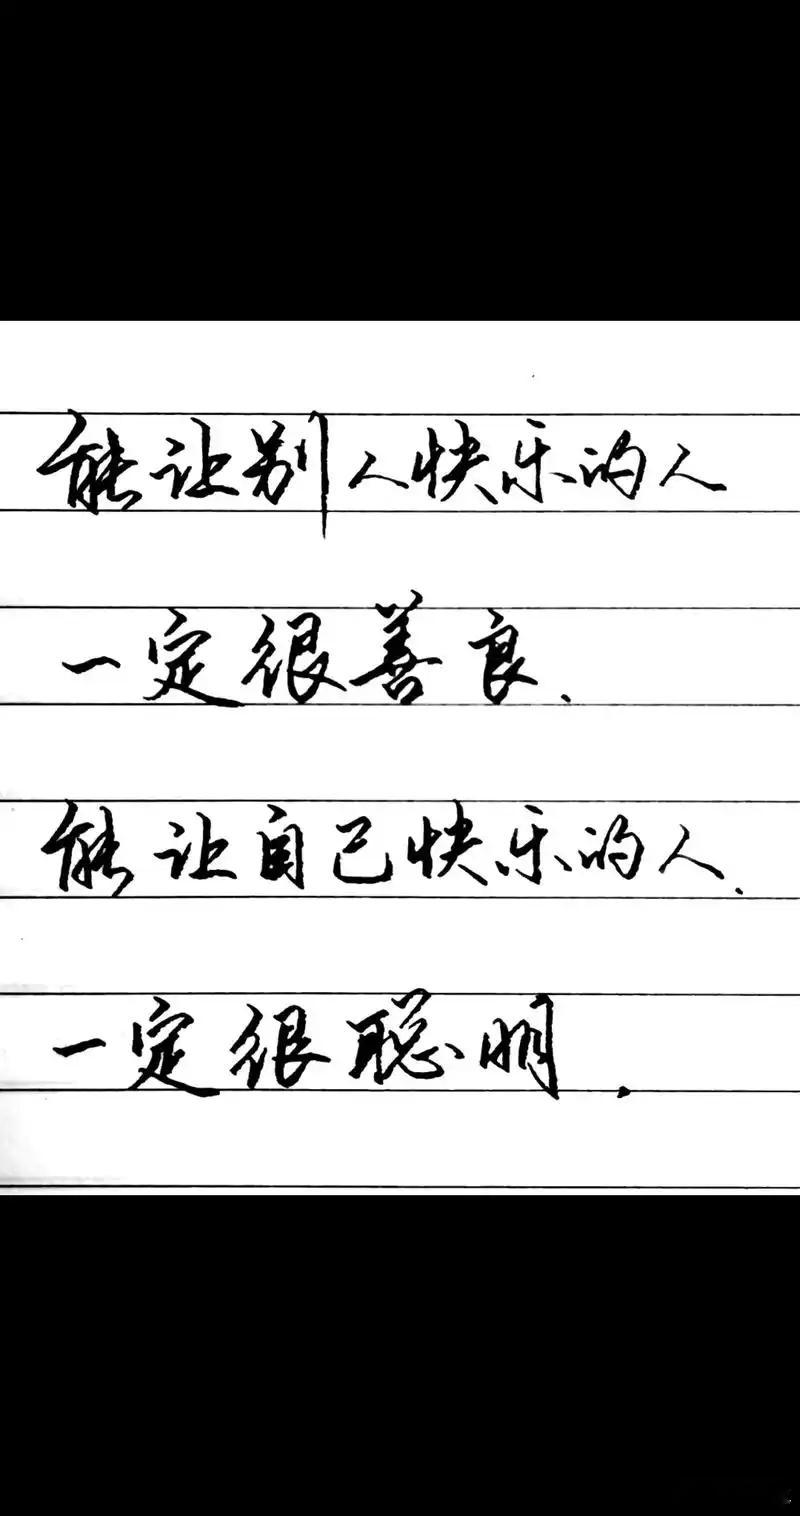 能让别人快乐的人
一定很善良.
能让自己快乐的人.
一定很聪明.